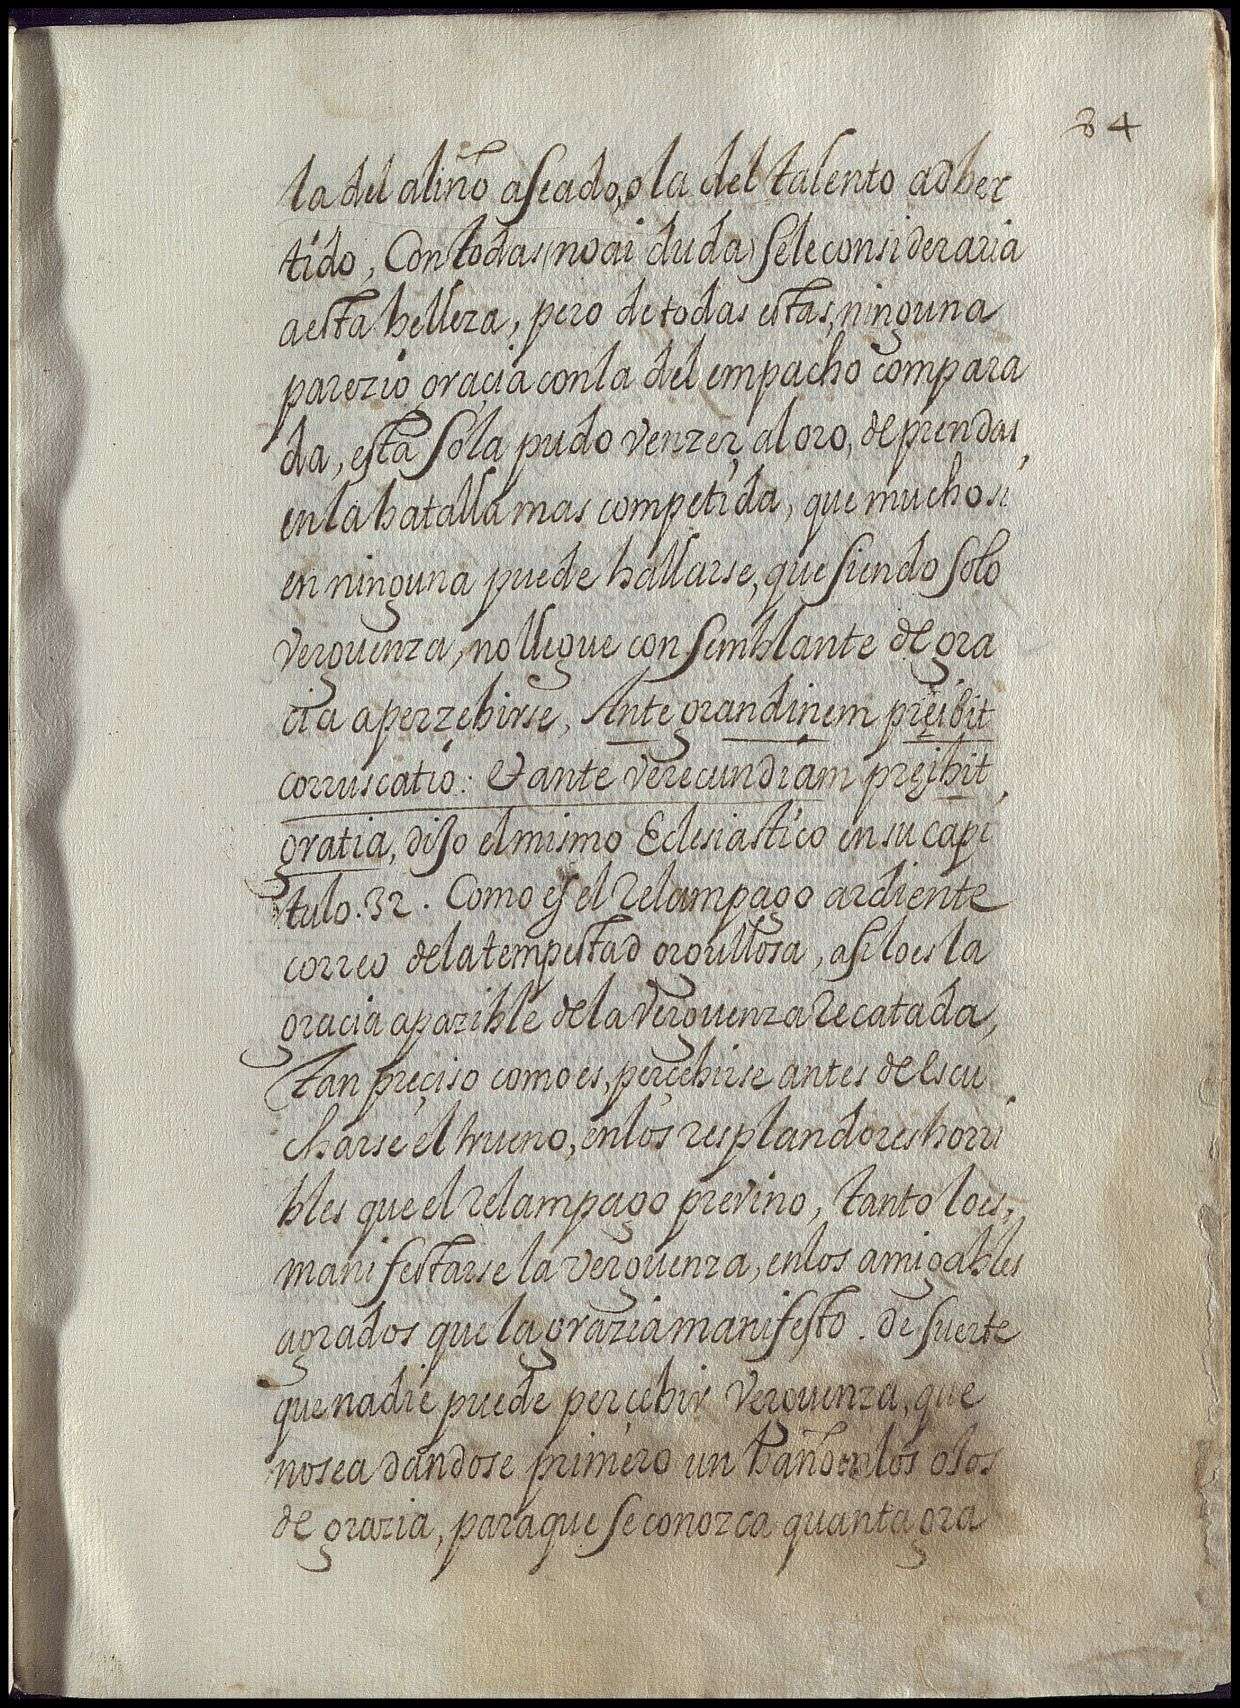 84
la del aliño aseado, o la del talento adber
tido, Con todas (no ai duda) se le consideraria
a esta belleza, pero de todas estas, ninguna
parezio gracia con la del empacho compara
da, esta sola pudo venzer, al oro, de prendas
en la batalla mas competida, que mucho si
en ninguna puede hallarse, que siendo solo
verguenza, no llegue con semblante de gra
cia aperzebirse, Ante grandinem pręibit
corruscatio: et ante verecundiam pręibit
gratia, dijo el mismo Eclesiastico en su capi
tulo. 32. Como es el relampago ardiente
correo de la tempestad orgullosa, asi lo es la
gracia apazible de la verguenza recatada,
Tan preçiso como es, perçebirse antes de escu
charse el trueno, en los resplandores horri
bles que el relampago previno, tanto lo es,
manifestarse la verguenza, en los amigables
agrados que la grazia manifesto. de suerte
que nadie puede perçebir verguenza, que
no sea dandose primero un baño en los ojos
de grazia, para que se conozca quanta gra